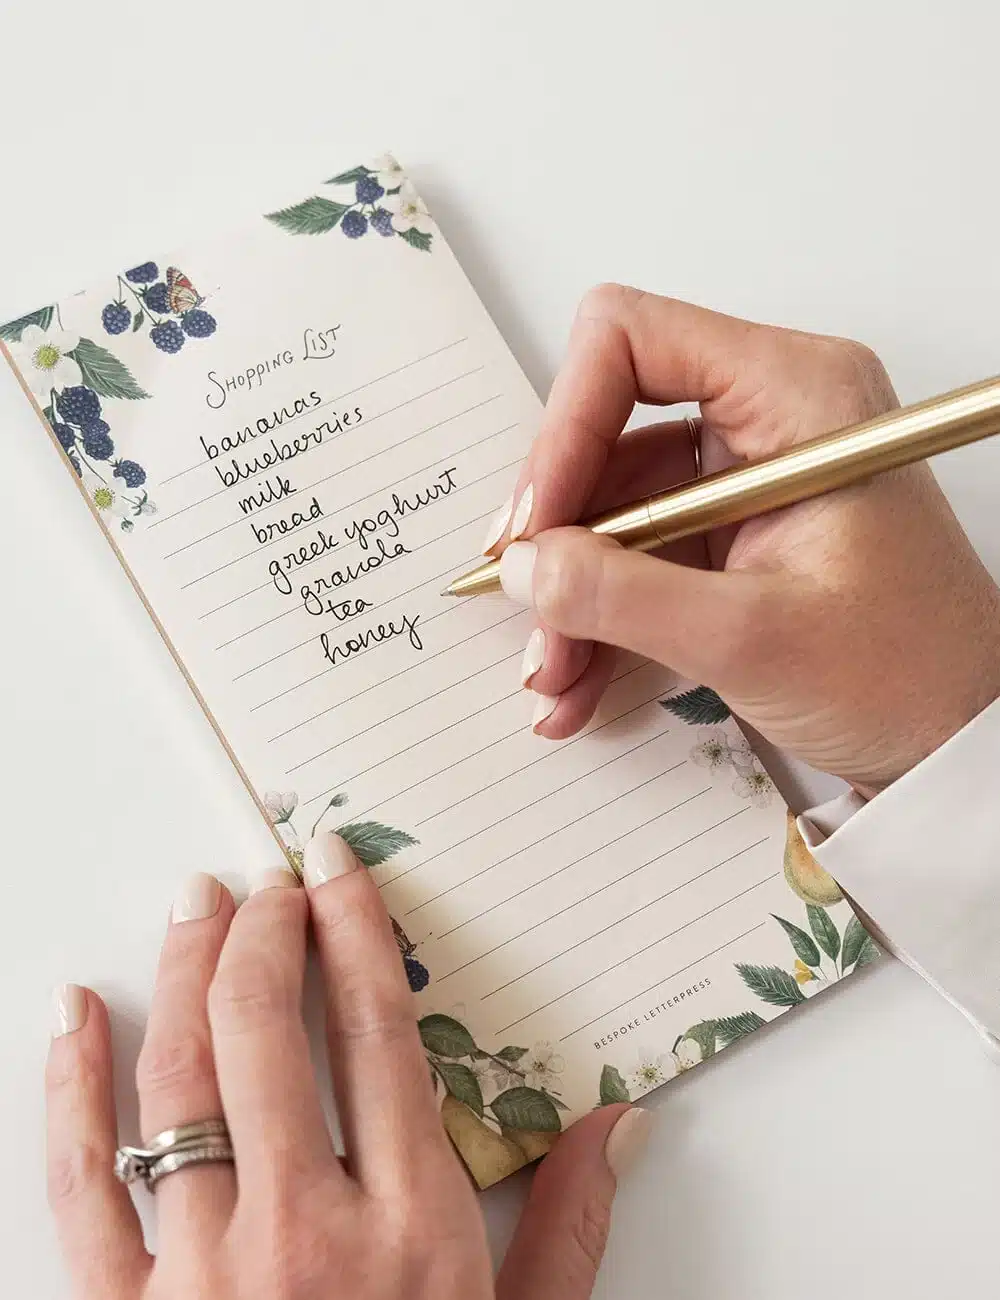 SHOPPING LIST
bananas
blueberries
milk
bread
greek yoghurt
granola
tea
honey
BESPOKE LETTERPRESS